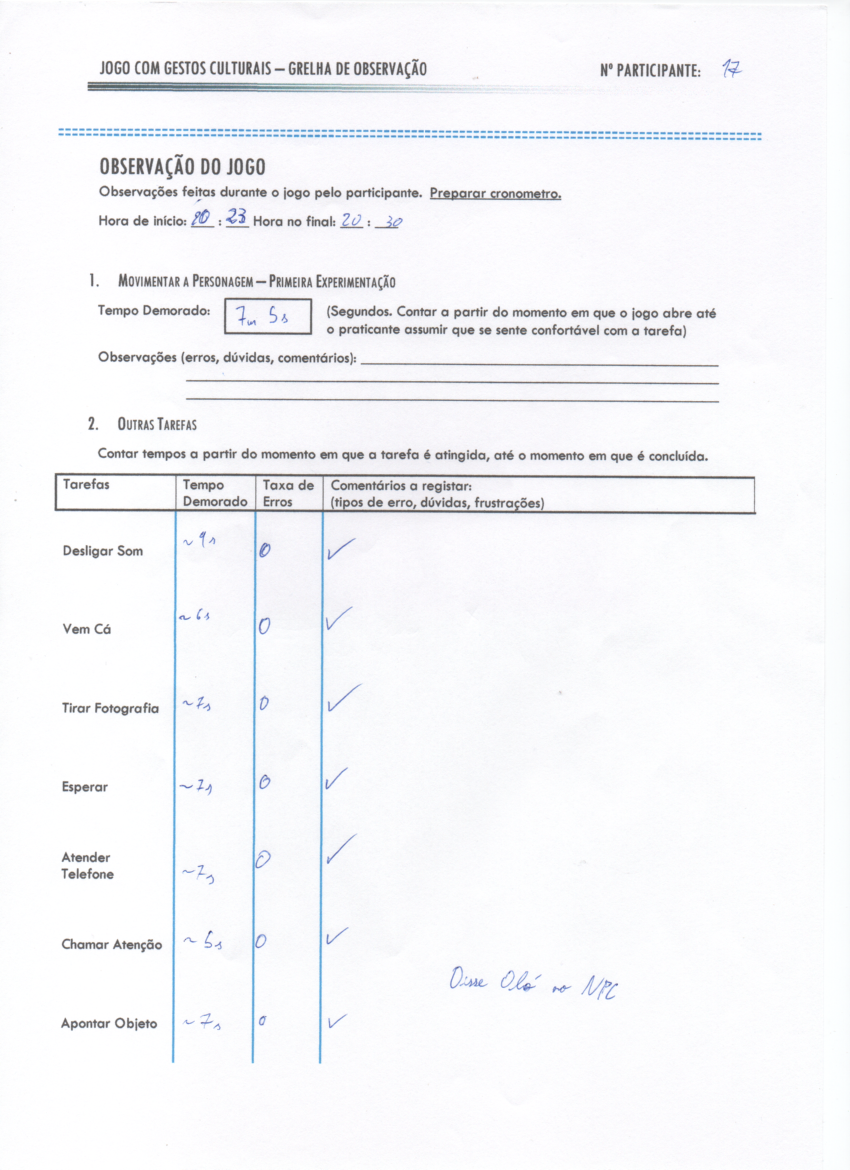 JOGO COM GESTOS CULTURAIS – GRELHA DE OBSERVAÇÃO Nº PARTICIPANTE: 17
OBSERVAÇÃO DO JOGO
Observações feitas durante o jogo pelo participante. Preparar cronometro.
Hora de início: 20 : 23 Hora no final: 20 : 30
1. MOVIMENTAR A PERSONAGEM – PRIMEIRA EXPERIMENTAÇÃO
Tempo Demorado: 7m 5s (Segundos. Contar a partir do momento em que o jogo abre até
o praticante assumir que se sente confortável com a tarefa)
Observações (erros, dúvidas, comentários):
2. OUTRAS TAREFAS
Contar tempos a partir do momento em que a tarefa é atingida, até o momento em que é concluída.
Tarefas Tempo Taxa de Comentários a registar:
Demorado Erros (tipos de erro, dúvidas, frustrações)
Desligar Som ~ 9s 0 ✓
Vem Cá ~ 6s 0 ✓
Tirar Fotografia ~7s 0 ✓
Esperar ~7s 0 ✓
Atender
Telefone ~7s 0 ✓
Chamar Atenção ~ 5s 0 ✓
Disse Olá no NPC
Apontar Objeto ~ 7s 0 ✓